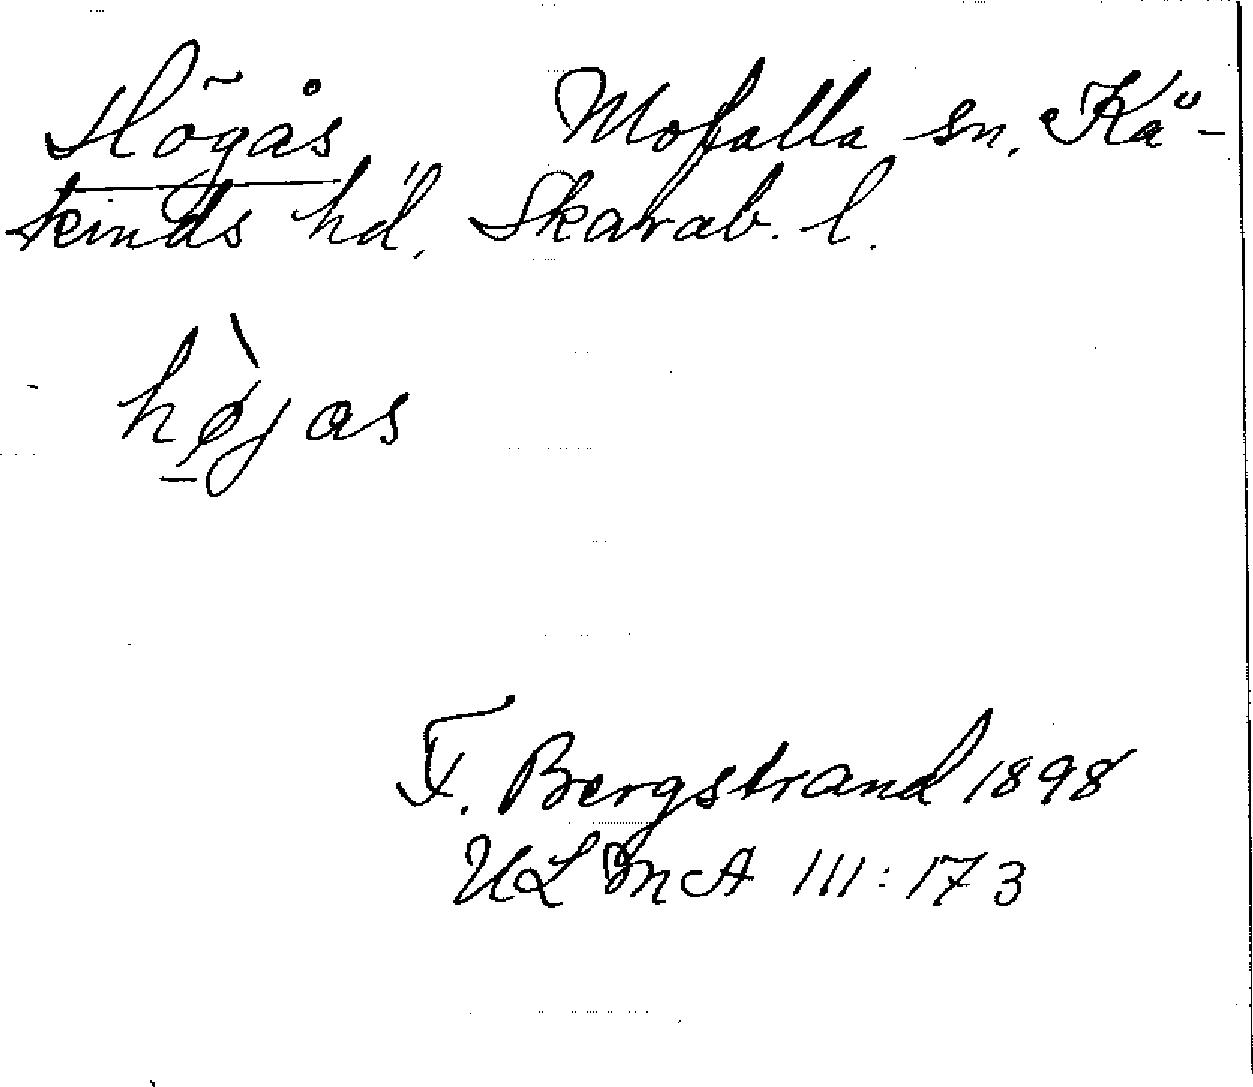 Högås Mofalla sn. Kå-
kinds hd. Skarab. l.
hø̱̀jas
F. Bergstrand 1898
ULMA 111:173